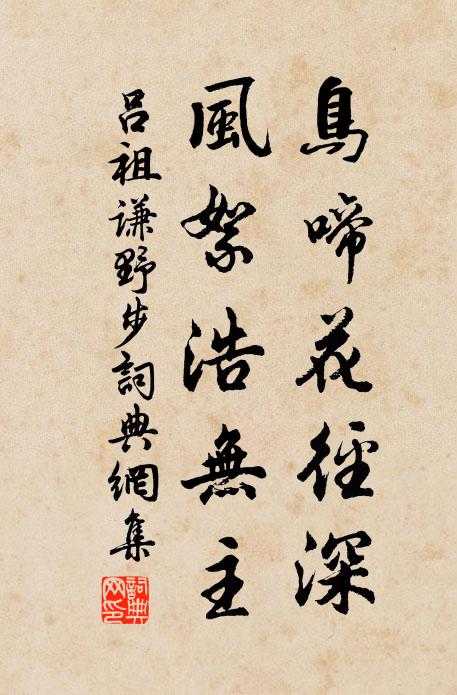 鳥啼花徑深
風絮浩無主
呂祖謙野步詞典網集
詞典网印